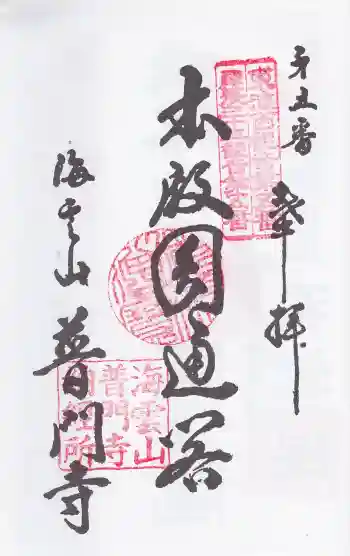 第十一番
奉拝
本殿圓通閣
海雲山 普門寺
海雲山
普門寺
納経所